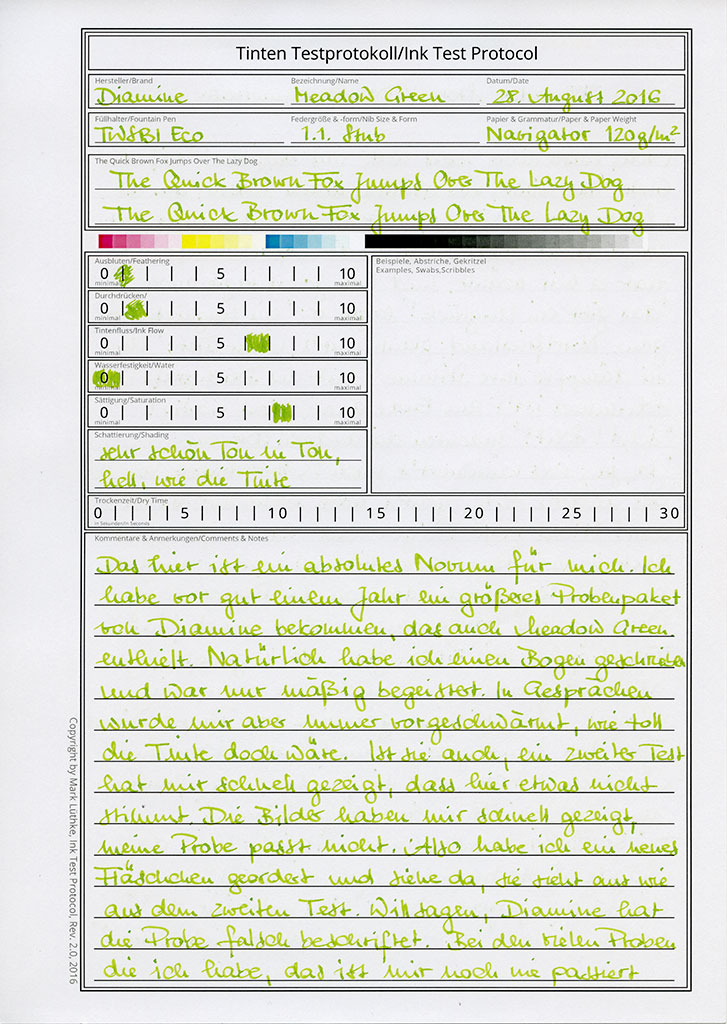 Tinten Testprotokoll/Ink Test Protocol
Hersteller/Brand Bezeichnung/Name Datum/Date
Diamine Meadow Green 28. August 2016
Füllhalter/Fountain Pen Federgröße & -form/Nib Size & Form Papier & Grammatur/Paper & Paper Weight
TWSBI Eco 1.1. Stub Navigator 120g/m²
The Quick Brown Fox Jumps Over The Lazy Dog
The Quick Brown Fox Jumps Over The Lazy Dog
The Quick Brown Fox Jumps Over The Lazy Dog
Ausbluten/Feathering
0 | | | | 5 | | | | 10
minimal maximal
Durchdrücken/
0 | | | | 5 | | | | 10
minimal maximal
Tintenfluss/Ink Flow
0 | | | | 5 | | | | 10
minimal maximal
Wasserfestigkeit/Water
0 | | | | 5 | | | | 10
minimal maximal
Sättigung/Saturation
0 | | | | 5 | | | | 10
minimal maximal
Beispiele, Abstriche, Gekritzel
Examples, Swabs,Scribbles
Schattierung/Shading
sehr schön Ton in Ton,
hell, wie die Tinte
Trockenzeit/Dry Time
0 | | | | 5 | | | | 10 | | | | 15 | | | | 20 | | | | 25 | | | | 30
in Sekunden/in Seconds
Kommentare & Anmerkungen/Comments & Notes
Das hier ist ein absolutes Novum für mich. Ich
habe vor gut einem Jahr ein größeres Probenpaket
von Diamine bekommen, das auch Meadow Green
enthielt. Natürlich habe ich einen Bogen geschrieben
und war nur mäßig begeistert. In Gesprächen
wurde mir aber immer vorgeschwärmt, wie toll
die Tinte doch wäre. Ist sie auch, ein zweiter Test
hat mir schnell gezeigt, dass hier etwas nicht
stimmt. Die Bilder haben mir schnell gezeigt,
meine Probe passt nicht. Also habe ich ein neues
Fläschchen geordert und siehe da, sie sieht aus wie
aus dem zweiten Test. Will sagen, Diamine hat
die Probe falsch beschriftet. Bei den vielen Proben
die ich habe, das ist mir noch nie passiert
Copyright by Mark Lüthke, Ink Test Protocol, Rev. 2.0, 2016